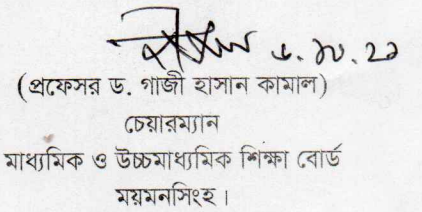 (প্রফেসর ড. গাজী হাসান কামাল)
চেয়ারম্যান
মাধ্যমিক ও উচ্চমাধ্যমিক শিক্ষা বোর্ড
ময়মনসিংহ।